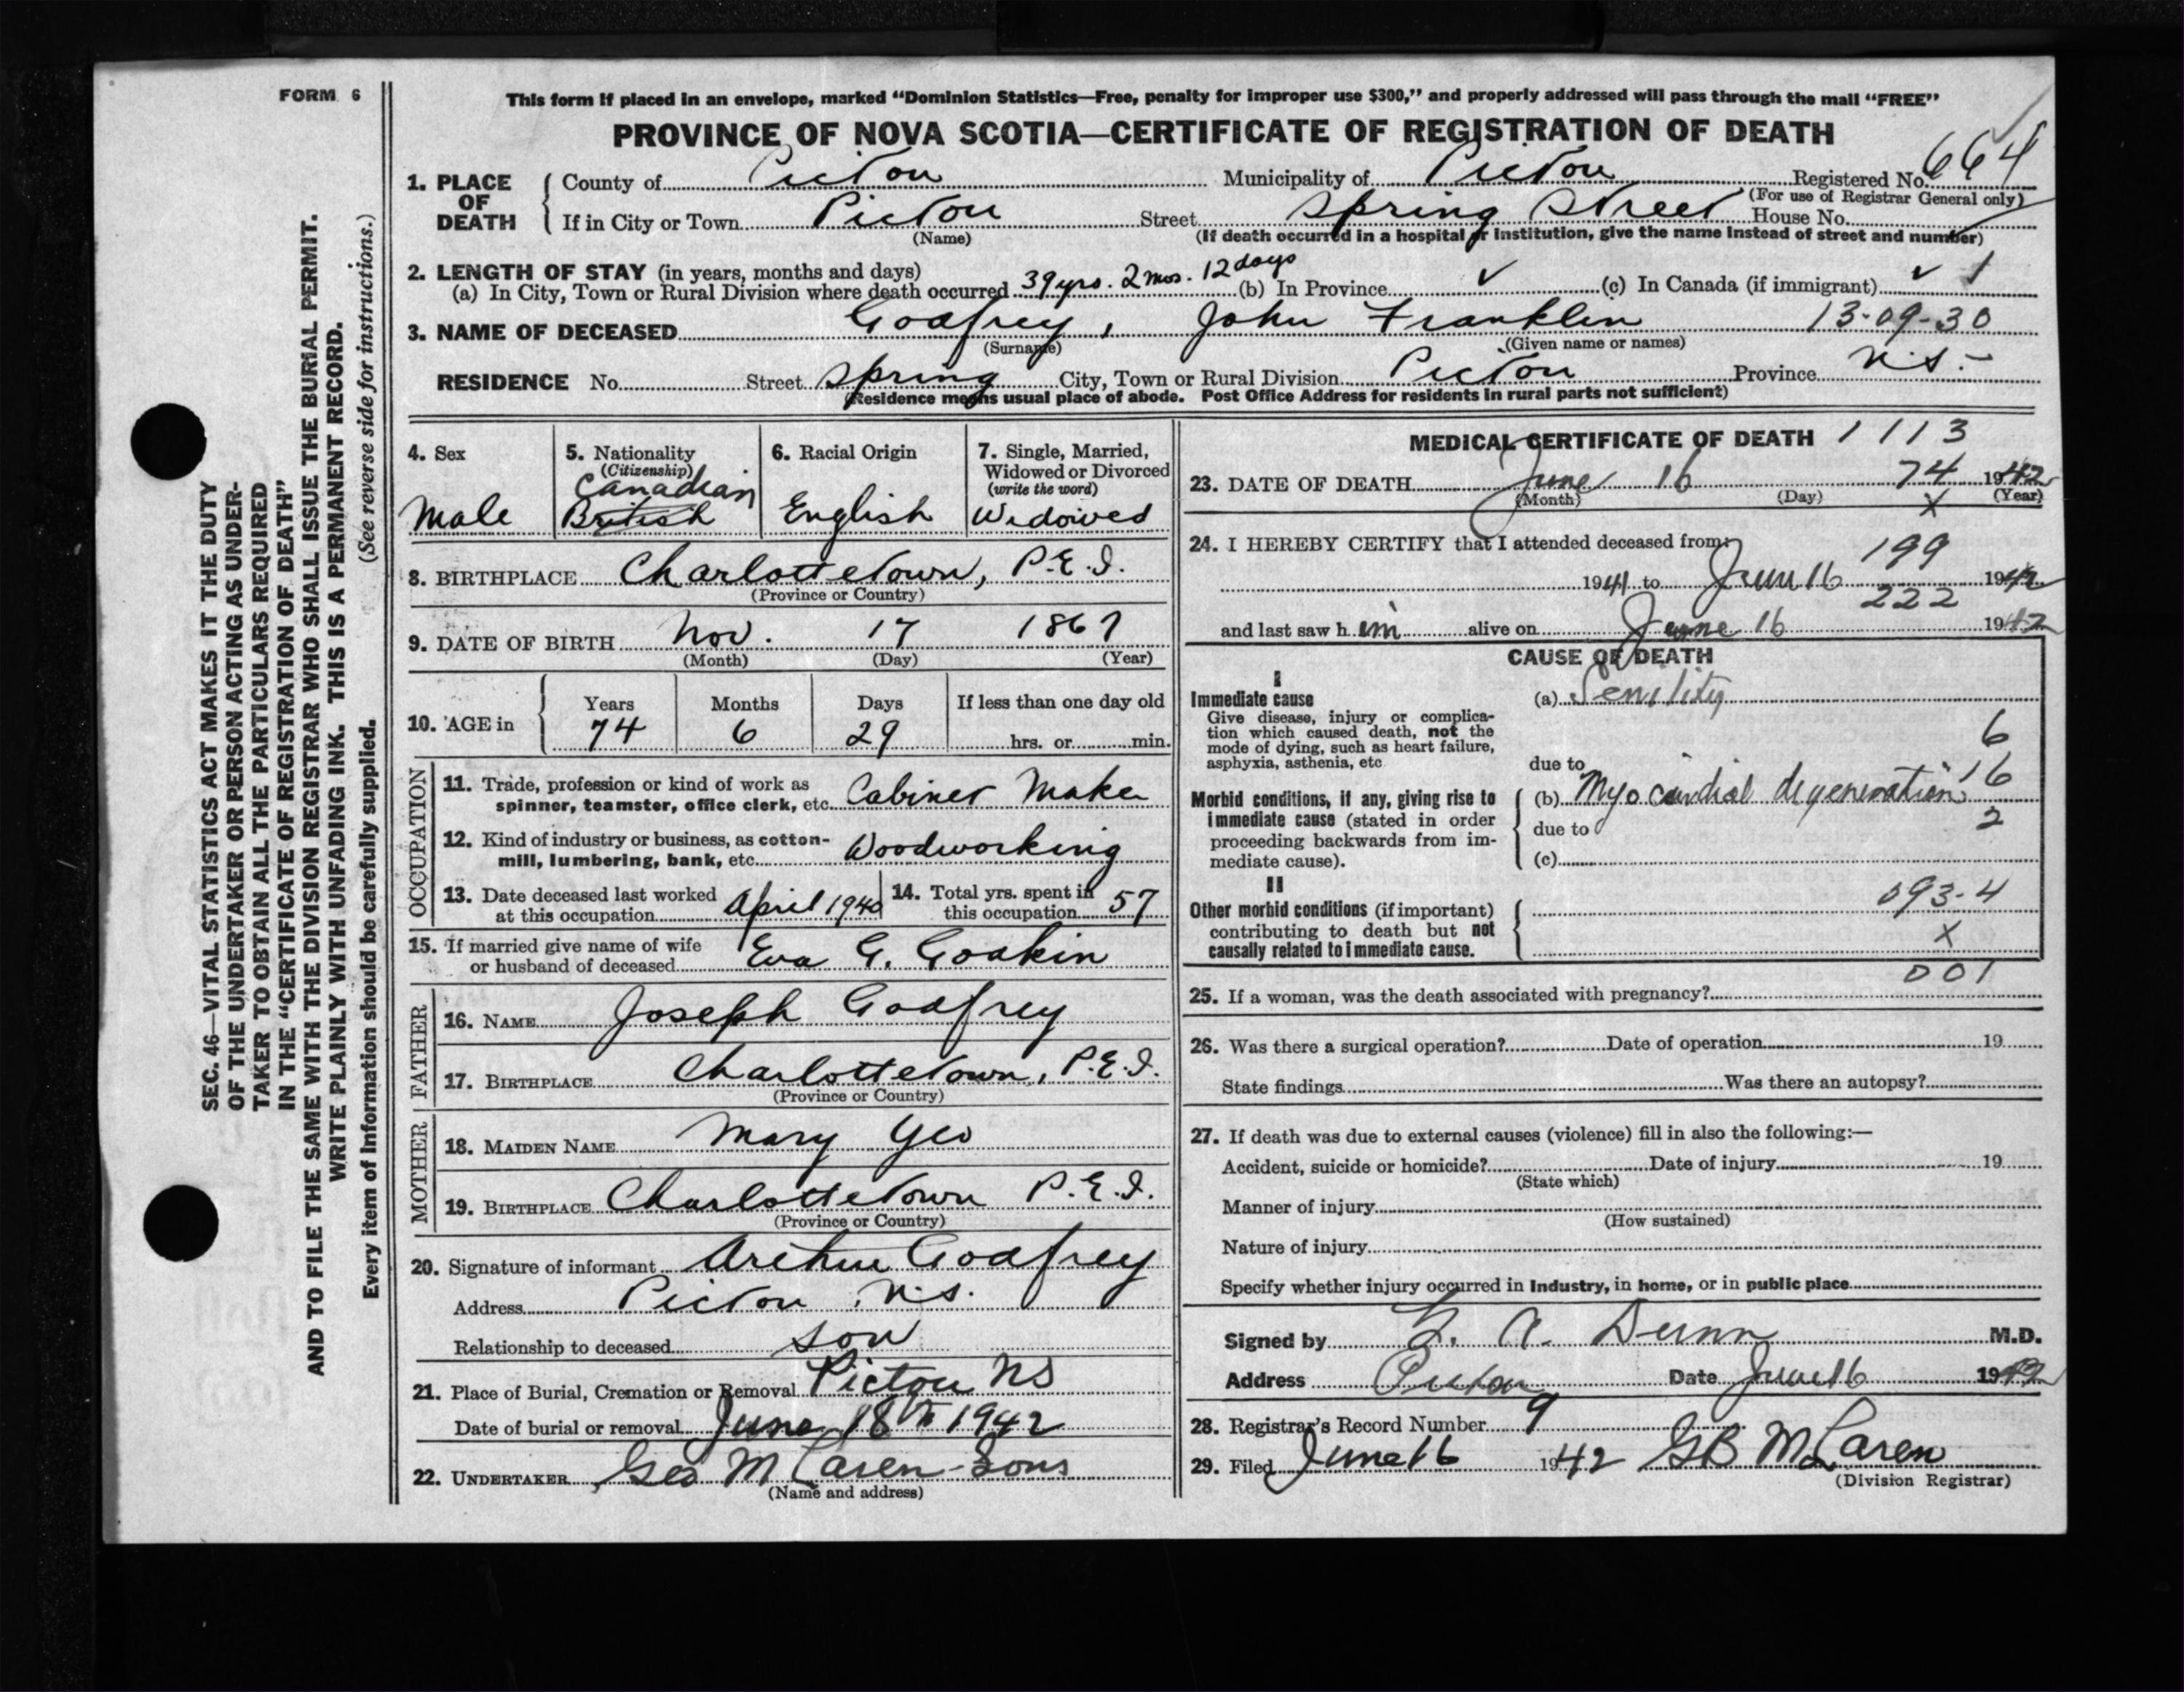 FORM 6
This form if placed in an envelope, marked “Dominion Statistics—Free, penalty for improper use $300,” and properly addressed will pass through the mail “FREE”
PROVINCE OF NOVA SCOTIA—CERTIFICATE OF REGISTRATION OF DEATH
1. PLACE OF DEATH County of Pictou Municipality of Pictou Registered No. 664
(For use of Registrar General only)
If in City or Town Pictou Street Spring Street House No.
(Name) (If death occurred in a hospital or institution, give the name instead of street and number)
2. LENGTH OF STAY (in years, months and days)
(a) In City, Town or Rural Division where death occurred 39 yrs. 2 mos. 12 days (b) In Province ✓ (c) In Canada (if immigrant) ✓ 1
3. NAME OF DECEASED Godfrey, John Franklin 13-09-30
(Surname) (Given name or names)
RESIDENCE No. Street Spring City, Town or Rural Division Pictou Province N.S.-
(Residence means usual place of abode. Post Office Address for residents in rural parts not sufficient)
4. Sex Male
5. Nationality (Citizenship) Canadian British
6. Racial Origin English
7. Single, Married, Widowed or Divorced (write the word) Widowed
8. BIRTHPLACE Charlottetown, P.E.I.
(Province or Country)
9. DATE OF BIRTH Nov. 17 1867
(Month) (Day) (Year)
10. AGE in Years 74 Months 6 Days 29 If less than one day old hrs. or min.
OCCUPATION
11. Trade, profession or kind of work as spinner, teamster, office clerk, etc. Cabinet Maker
12. Kind of industry or business, as cotton-mill, lumbering, bank, etc. Woodworking
13. Date deceased last worked at this occupation April 1940
14. Total yrs. spent in this occupation 57
15. If married give name of wife or husband of deceased Eva G. Goakin
FATHER
16. NAME Joseph Godfrey
17. BIRTHPLACE Charlottetown, P.E.I.
(Province or Country)
MOTHER
18. MAIDEN NAME Mary Yeo
19. BIRTHPLACE Charlottetown P.E.I.
(Province or Country)
20. Signature of informant Arthur Godfrey
Address Pictou, N.S.
Relationship to deceased son
21. Place of Burial, Cremation or Removal Pictou NS
Date of burial or removal June 18th 1942
22. UNDERTAKER Geo McLaren Sons
(Name and address)
MEDICAL CERTIFICATE OF DEATH 1113
23. DATE OF DEATH June 16 74 1942
(Month) (Day) (Year)
X
24. I HEREBY CERTIFY that I attended deceased from:
199
1941 to June 16 1942
222
and last saw h im alive on June 16 1942
CAUSE OF DEATH
I
Immediate cause (a) Senility
Give disease, injury or complication which caused death, not the mode of dying, such as heart failure, asphyxia, asthenia, etc
6
due to
Morbid conditions, if any, giving rise to immediate cause (stated in order proceeding backwards from immediate cause).
(b) Myocardial degeneration 16
due to 2
(c)
II
Other morbid conditions (if important) contributing to death but not causally related to immediate cause.
093-4
X
001
25. If a woman, was the death associated with pregnancy?
26. Was there a surgical operation? Date of operation 19
State findings Was there an autopsy?
27. If death was due to external causes (violence) fill in also the following:—
Accident, suicide or homicide? Date of injury 19
(State which)
Manner of injury
(How sustained)
Nature of injury
Specify whether injury occurred in industry, in home, or in public place
Signed by G. A. Dunn M.D.
Address Pictou Date June 16 1942
28. Registrar's Record Number 9
29. Filed June 16 1942 GB McLaren
(Division Registrar)
SEC. 46—VITAL STATISTICS ACT MAKES IT THE DUTY
OF THE UNDERTAKER OR PERSON ACTING AS UNDER-
TAKER TO OBTAIN ALL THE PARTICULARS REQUIRED
IN THE “CERTIFICATE OF REGISTRATION OF DEATH”
AND TO FILE THE SAME WITH THE DIVISION REGISTRAR WHO SHALL ISSUE THE BURIAL PERMIT.
WRITE PLAINLY WITH UNFADING INK. THIS IS A PERMANENT RECORD.
Every item of information should be carefully supplied. (See reverse side for instructions.)